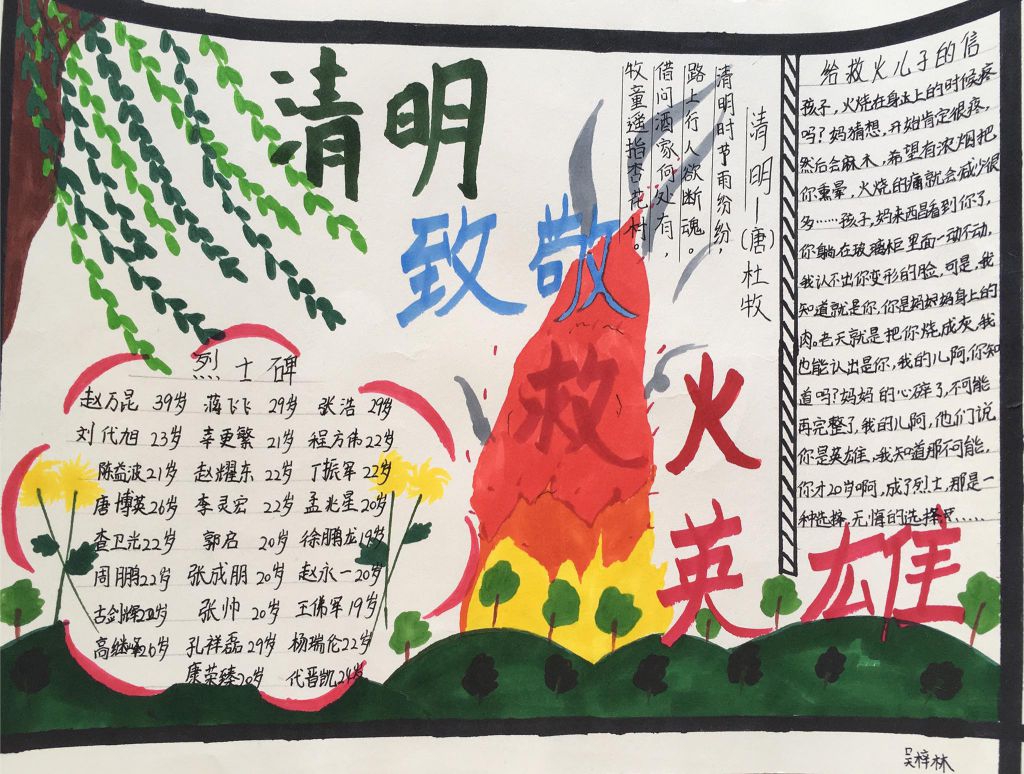 清明
致敬
救火
英雄
清明—(唐)杜牧
清明时节雨纷纷，
路上行人欲断魂。
借问酒家何处有，
牧童遥指杏花村。
烈士碑
赵万昆 39岁 蒋飞飞 29岁 张浩 29岁
刘代旭 23岁 幸更繁 21岁 程方伟22岁
陈益波21岁 赵耀东 22岁 丁振军 22岁
唐博英26岁 李灵宏 22岁 孟兆星20岁
查卫光22岁 郭启 20岁 徐鹏龙19岁
周鹏22岁 张成朋20岁 赵永一20岁
古剑辉 张帅 20岁 王佛军 19岁
高继垲26岁 孔祥磊29岁 杨瑞伦22岁
康荣臻20岁 代晋凯24岁
给救火儿子的信
孩子，火烧在身上的时候疼
吗？妈猜想，开始肯定很疼，
然后会麻木，希望有浓烟把
你熏晕，火烧的痛就会减少很
多……孩子，妈来西昌看到你了，
你躺在玻璃柜里面一动不动，
我认不出你变形的脸，可是，我
知道就是你，你是妈妈身上的
肉，老天就是把你烧成灰，我
也能认出是你，我的儿阿，你知
道吗？妈妈的心碎了，不可能
再完整了，我的儿阿，他们说
你是英雄，我知道那不可能，
你才20岁啊，成了烈士，那是一
种选择，无悔的选择……
吴梓林